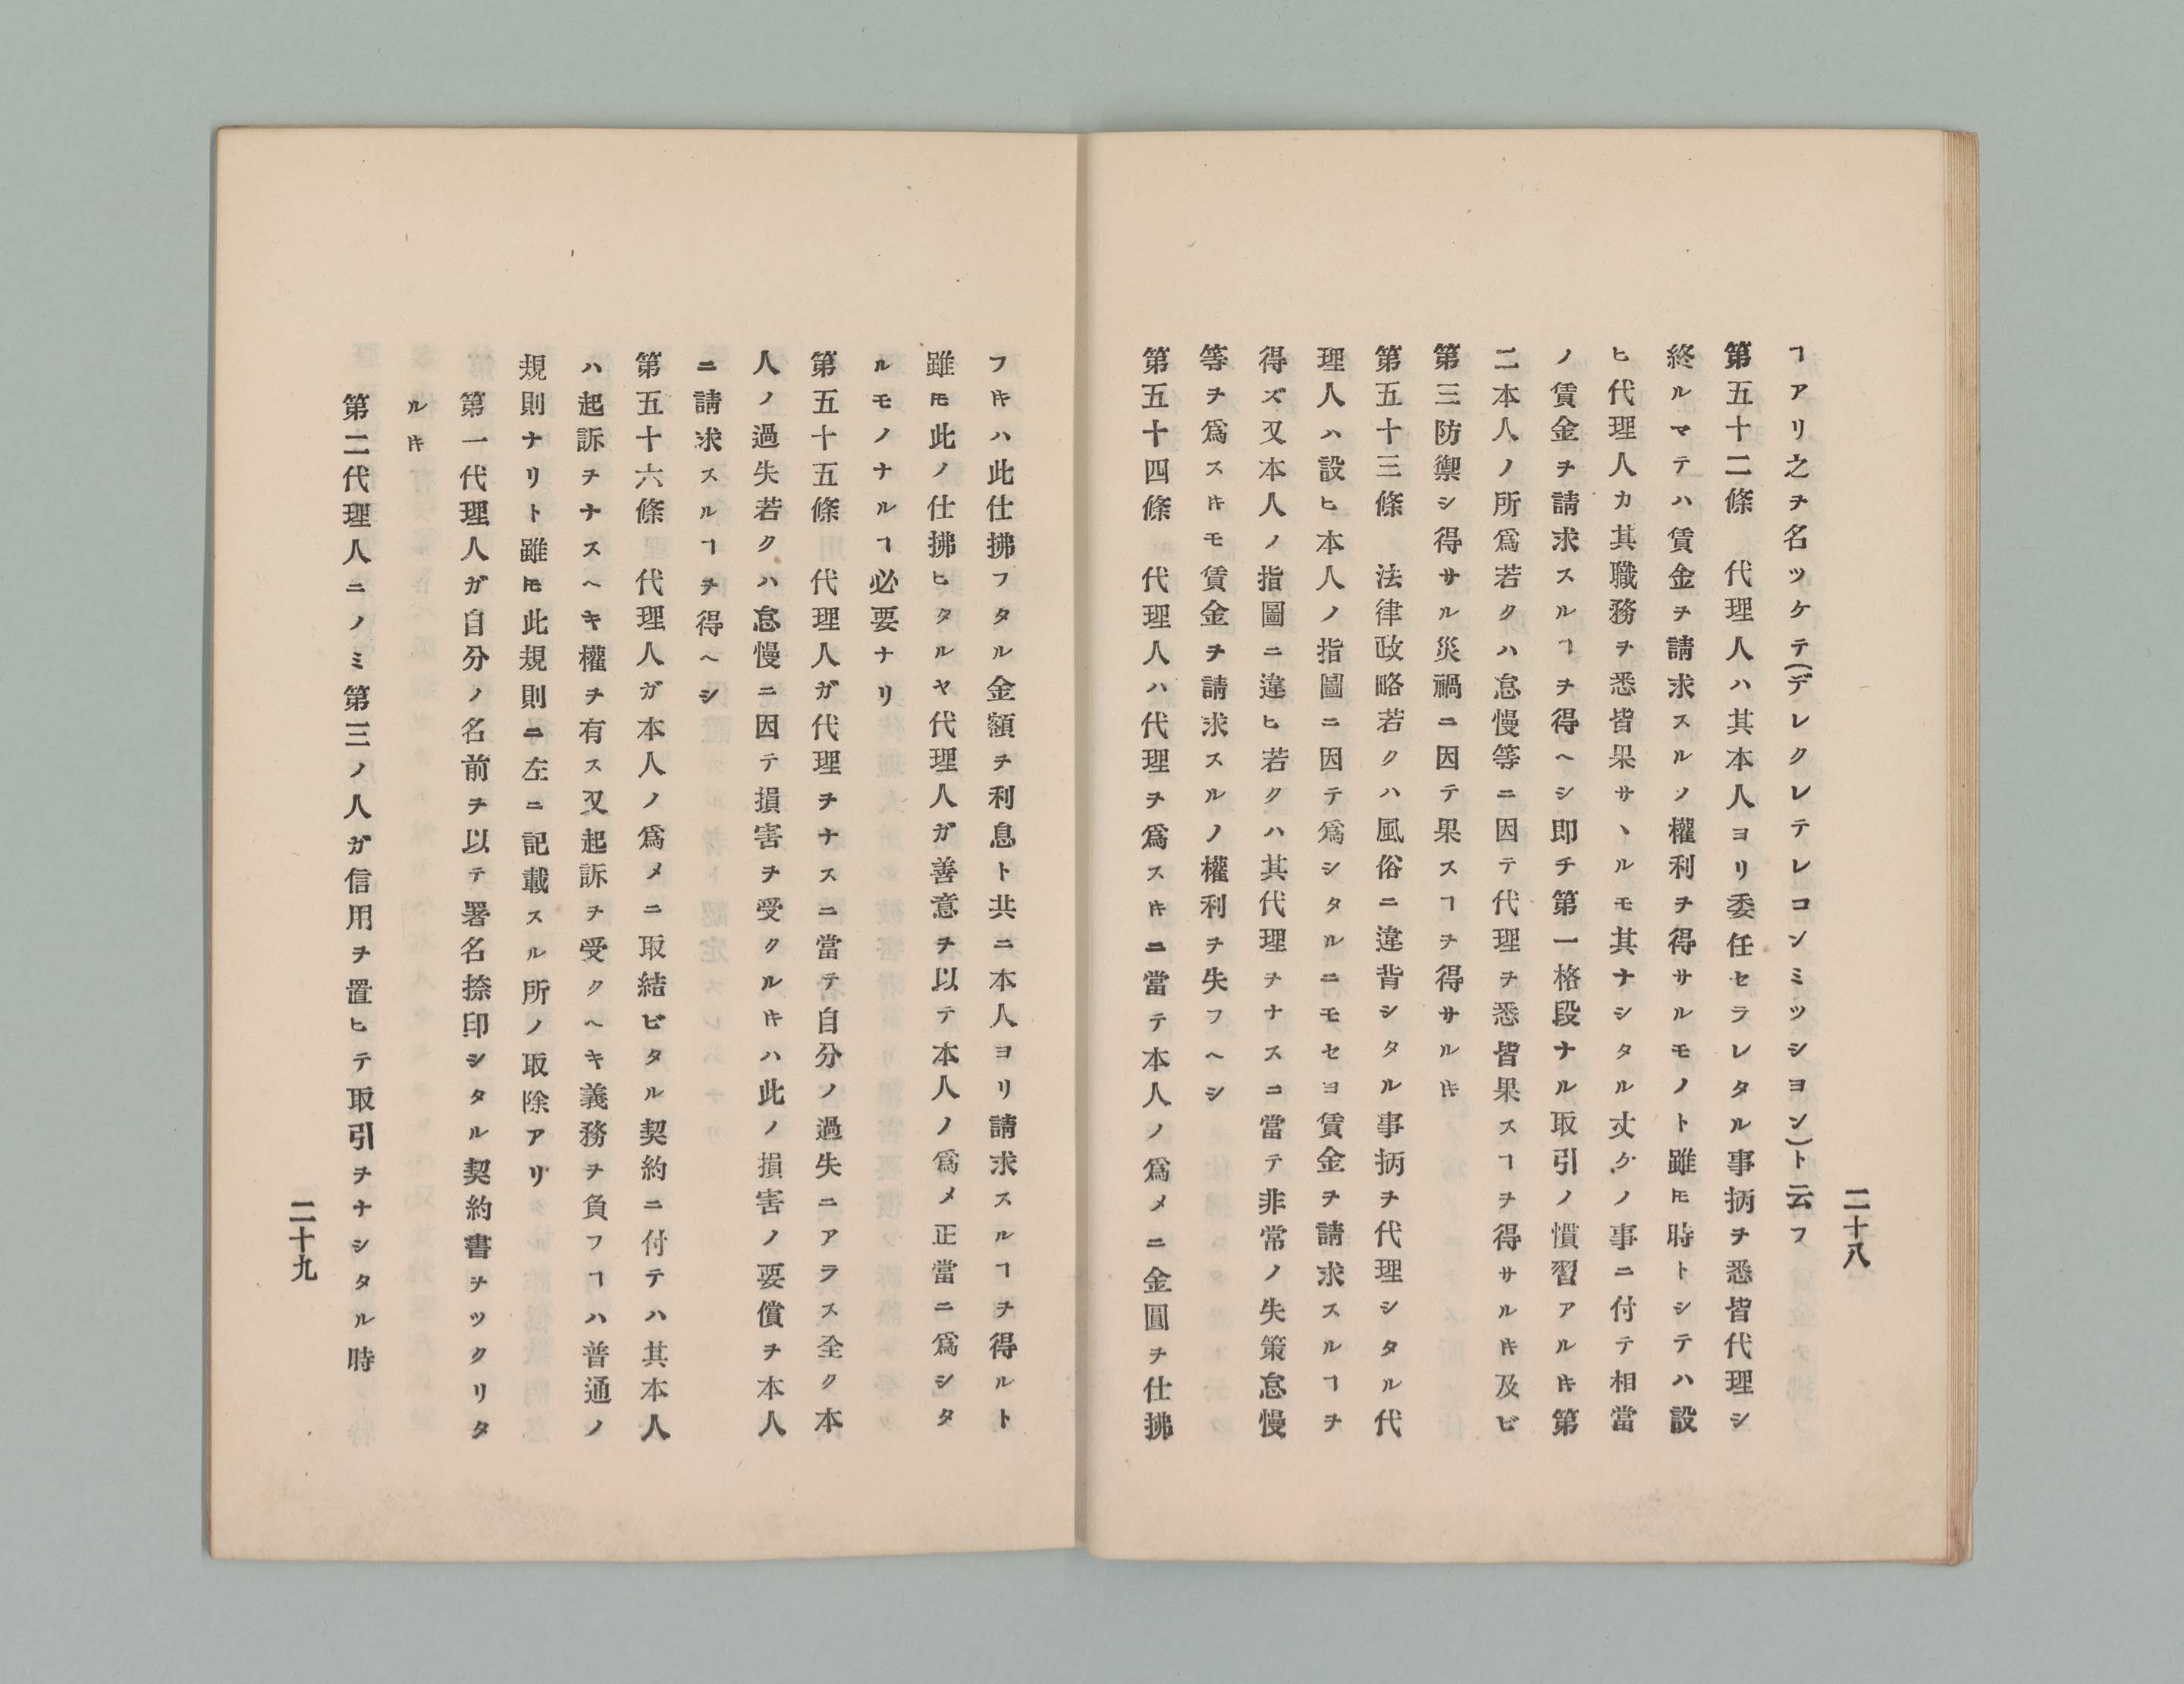 二十八
ヿアリ之ヲ名ツケテ(デレクレテレコンミツシヨン)ト云フ
第五十二條　代理人ハ其本人ヨリ委任セラレタル事抦ヲ悉皆代理シ
終ルマテハ賃金ヲ請求スルノ權利ヲ得サルモノト雖𪜈時トシテハ設
ヒ代理人カ其職務ヲ悉皆果サヽルモ其ナシタル丈ケノ事ニ付テ相當
ノ賃金ヲ請求スルヿヲ得ヘシ即チ第一格段ナル取引ノ慣習アルキ第
二本人ノ所爲若クハ怠慢等ニ因テ代理ヲ悉皆果スヿヲ得サルキ及ビ
第三防禦シ得サル災禍ニ因テ果スヿヲ得サルキ
第五十三條　法律政略若クハ風俗ニ違背シタル事抦ヲ代理シタル代
理人ハ設ヒ本人ノ指圖ニ因テ爲シタルニモセヨ賃金ヲ請求スルヿヲ
得ズ又本人ノ指圖ニ違ヒ若クハ其代理ヲナスニ當テ非常ノ失策怠慢
等ヲ爲スキモ賃金ヲ請求スルノ權利ヲ失フヘシ
第五十四條　代理人ハ代理ヲ爲スキニ當テ本人ノ爲メニ金圓ヲ仕拂
フキハ此仕拂フタル金額ヲ利息ト共ニ本人ヨリ請求スルヿヲ得ルト
雖𪜈此ノ仕拂ヒタルヤ代理人ガ善意ヲ以テ本人ノ爲メ正當ニ爲シタ
ルモノナルヿ必要ナリ
第五十五條　代理人ガ代理ヲナスニ當テ自分ノ過失ニアラス全ク本
人ノ過失若クハ怠慢ニ因テ損害ヲ受クルキハ此ノ損害ノ要償ヲ本人
ニ請求スルヿヲ得ヘシ
第五十六條　代理人ガ本人ノ爲メニ取結ビタル契約ニ付テハ其本人
ハ起訴ヲナスヘキ權ヲ有ス又起訴ヲ受クヘキ義務ヲ負フヿハ普通ノ
規則ナリト雖𪜈此規則ニ左ニ記載スル所ノ取除アリ
第一代理人ガ自分ノ名前ヲ以テ署名捺印シタル契約書ヲツクリタ
ルキ
第二代理人ニノミ第三ノ人ガ信用ヲ置ヒテ取引ヲナシタル時
二十九